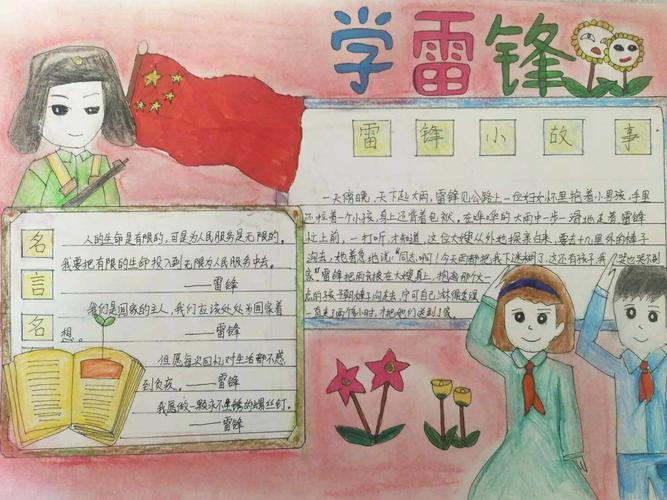 学雷锋
雷锋小故事
一天傍晚,天下起大雨,雷锋见公路上一位妇女怀里抱着小男孩,手里
还拉着一个小孩,身上还背着包袱。在哗哗的大雨中一步一滑地走着,雷锋
忙上前,一打听,才知道,这位大嫂从外地探亲归来,要去十几里外的樟子
沟去,她着急地说:“同志啊!今天雨都把我下迷树了,这还有孩子,我哭也哭不到
家”雷锋把雨衣披在大嫂身上,抱起那个大
点的孩子朝樟子沟走去,宁可自己淋
一直走了两个小时,才把他们送到了家。
名言名
人的生命是有限的,可是为人民服务是无限的。
我要把有限的生命投入到无限为人民服务中去。
——雷锋
我们是国家的主人,我们应该处处为国家着
想。——雷锋
但愿每次回忆,对生活都不感
到负疚。——雷锋
我愿做一颗永不生锈的螺丝钉。
——雷锋